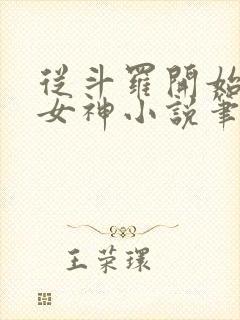 從斗羅開始
女神小說筆
王荣環